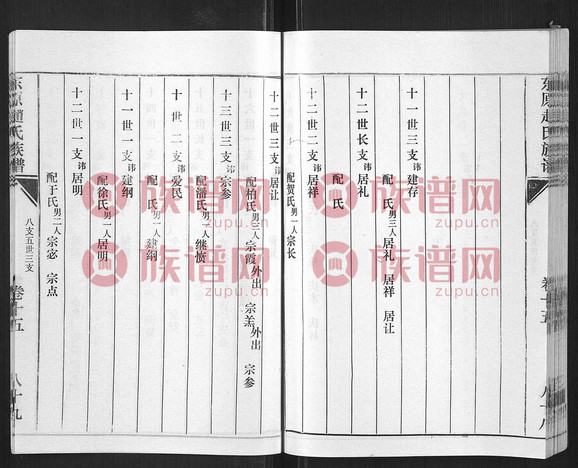 东原赵氏族谱
卷十五
十一世三支讳建存
配氏男三人居礼 居祥 居让
十二世长支讳居礼
配氏
十二世二支讳居祥
配贺氏男一人宗长
十二世三支讳居让
配柏氏男三人宗霞外出 宗羔外出 宗参
十三世三支讳宗参
配潘氏男一人继愤
十世二支讳爱民
配氏男一人建纲
十一世一支讳建纲
配徐氏男一人居明
十二世一支讳居明
配于氏男二人宗宓 宗点
东原赵氏族谱
八支五世三支
卷十五
八十九
族谱网
zupu.cn
族谱网
zupu.cn
族谱网
zupu.cn
族谱网
zupu.cn